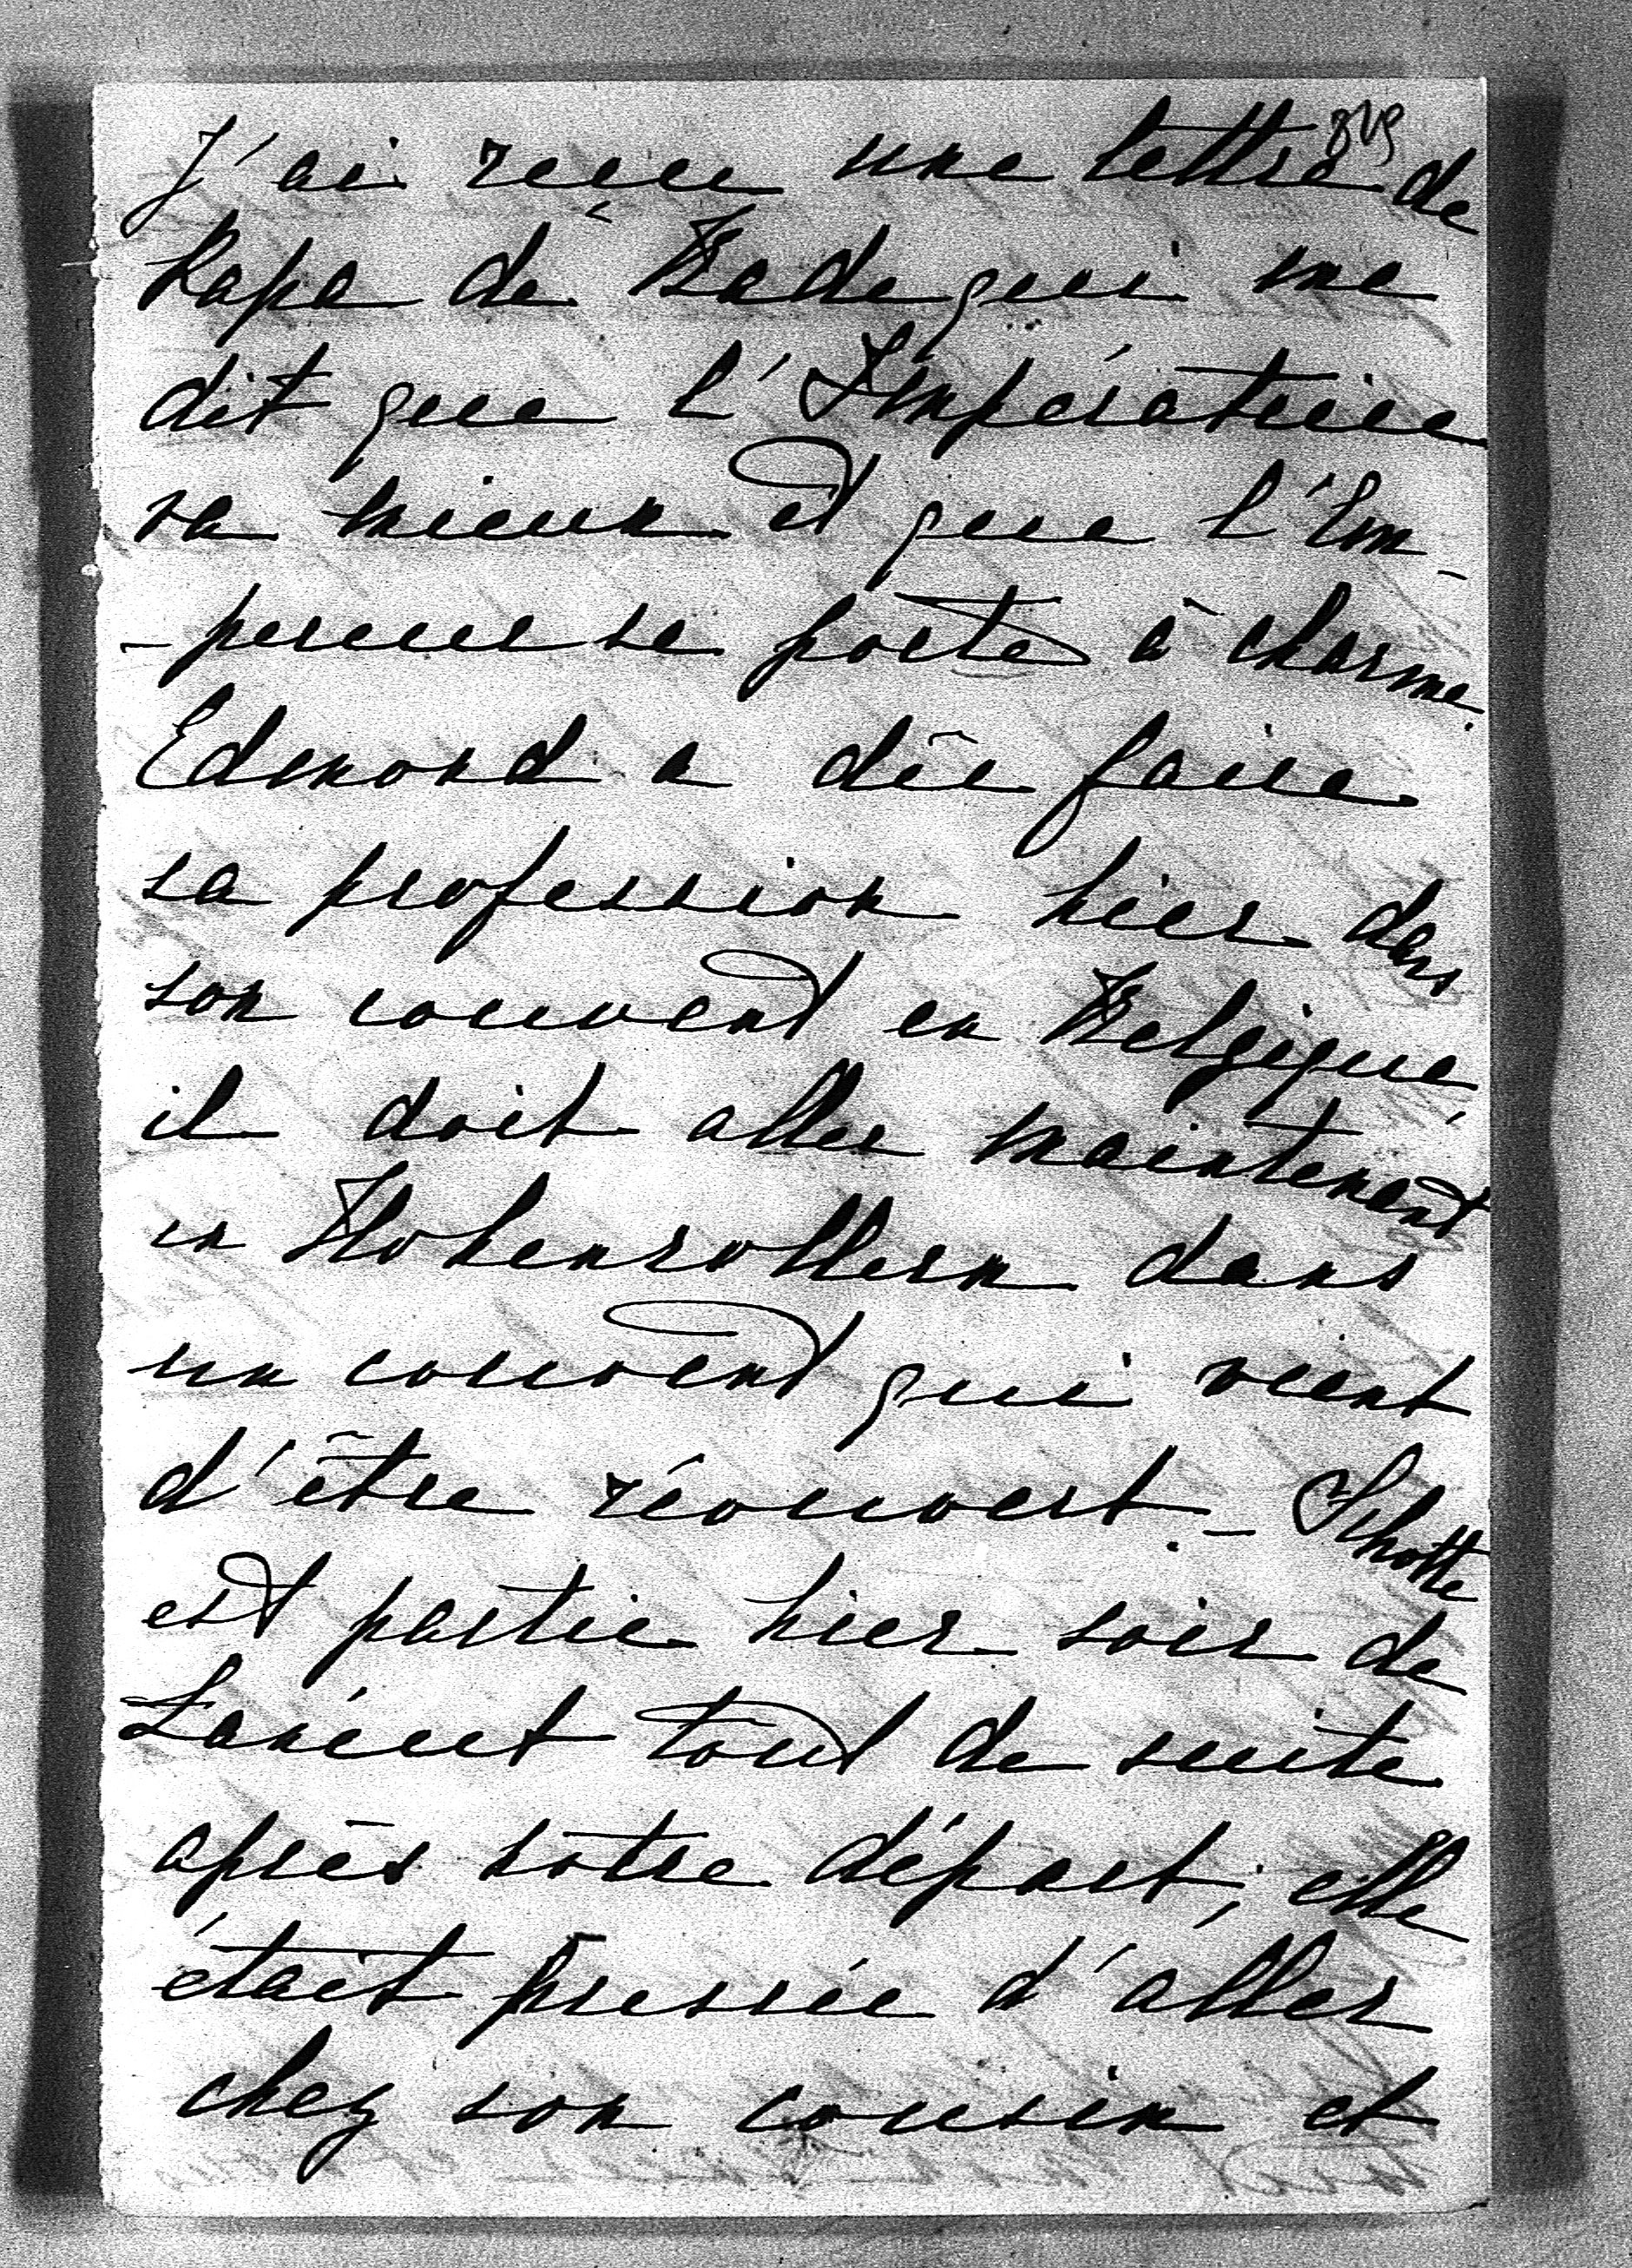 J'ai reçu une lettre de
Papa de Bade qui me
dit que l'Impératrice
va mieux et que l'Em-
-pereur se porte à charme.
Edmond a dû faire
sa profession hier dans
son couvent en Belgique,
il doit aller maintenant
en Hohenzollern dans
un couvent qui vient
d'être réouvert. - Schotte
est partie hier soir de
Lancut tout de suite
après nôtre départ, elle
était pressée d'aller
chez son cousin et